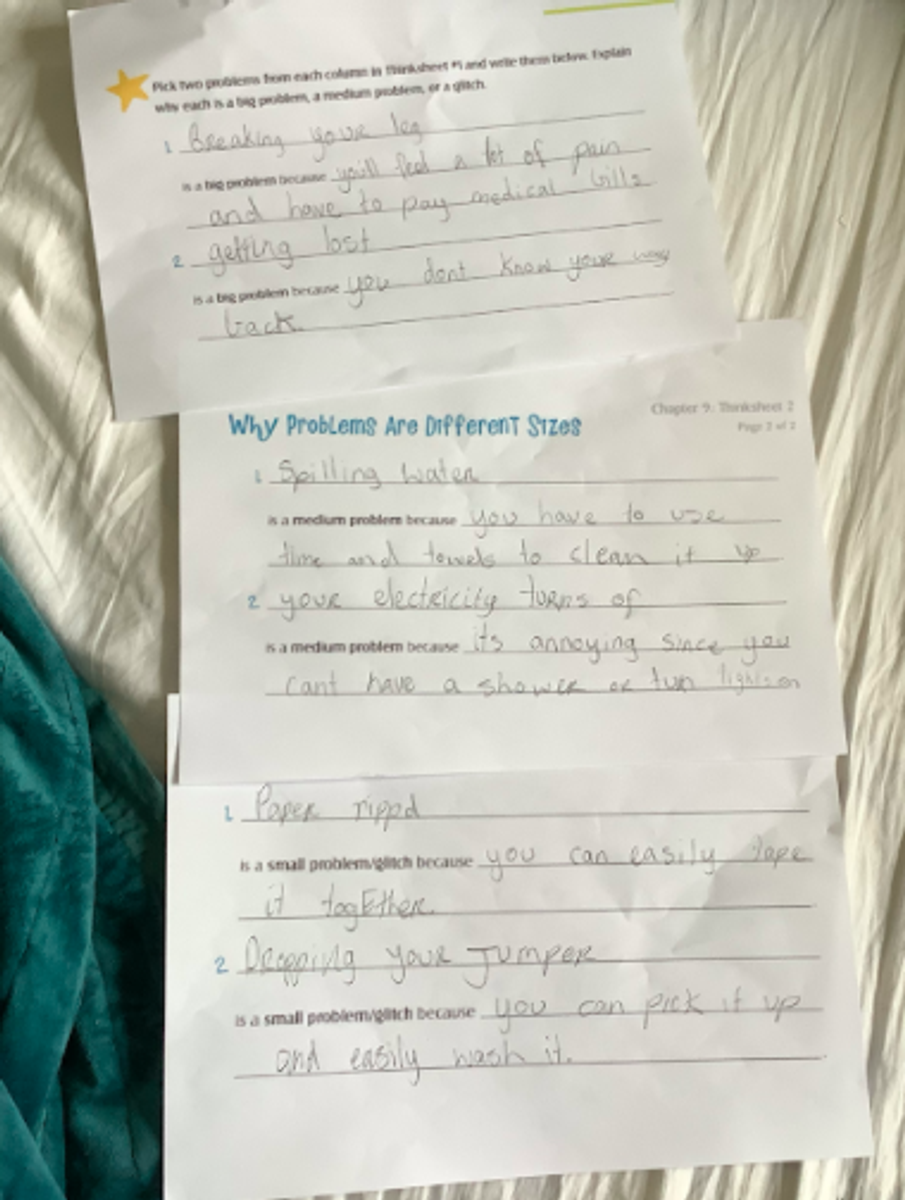 Pick two problems from each column in Thinksheet #1 and write them below. Explain
why each is a big problem, a medium problem, or a glitch.
1 Breaking your leg
is a big problem because you'll feel a lot of pain
and have to pay medical bills
2 getting lost
is a big problem because you dont know your way
back.
Why Problems Are Different Sizes
Chapter 9: Thinksheet 2
Page 2 of 2
1 Spilling water
is a medium problem because you have to use
time and towels to clean it up
2 your electricity turns of
is a medium problem because its annoying since you
cant have a shower or turn lights on
1 Paper rippd
is a small problem/glitch because you can easily tape
it together.
2 Dropping your Jumper
is a small problem/glitch because you can pick it up
and easily wash it.